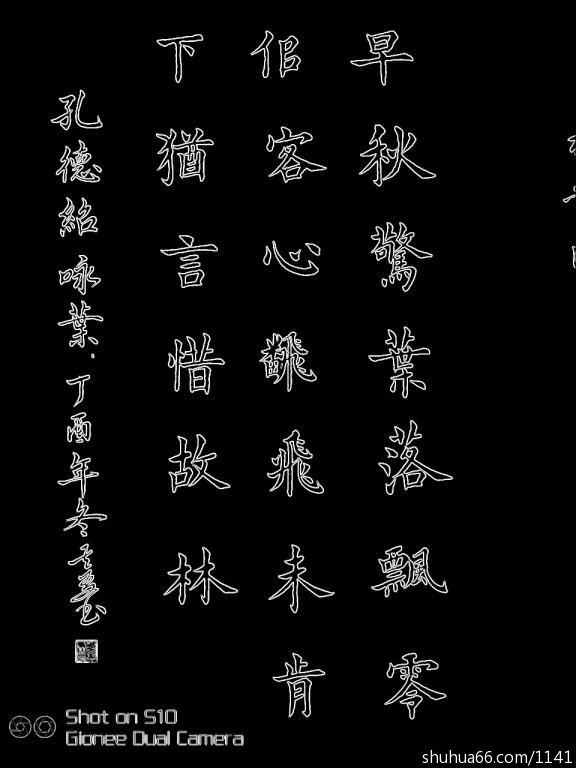 早秋驚葉落飄零
佀客心飜飛未肯
下猶言惜故林
孔德紹咏葉.丁酉年冬
Shot on S10
Gionee Dual Camera
shuhua66.com/1141